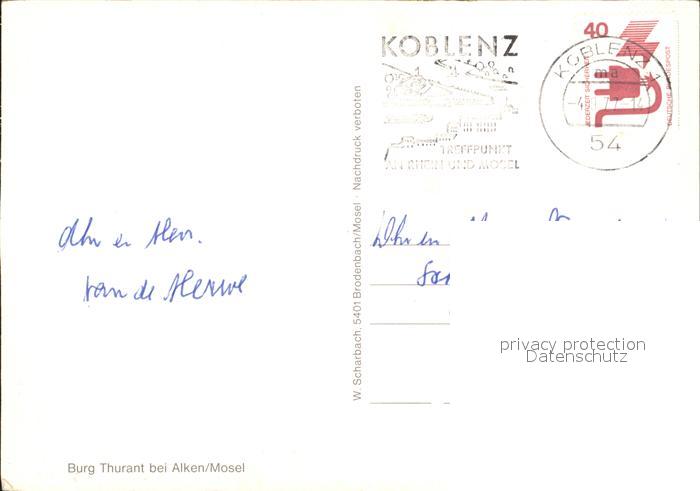 KOBLENZ
TREFFPUNKT
AN RHEIN UND MOSEL
40
JEDERZEIT SICHERHEIT
DEUTSCHE BUNDESPOST
KOBLENZ 1
ma
77-14
54
van de Merwe
W. Scharbach, 5401 Brodenbach/Mosel · Nachdruck verboten
privacy protection
Datenschutz
Burg Thurant bei Alken/Mosel